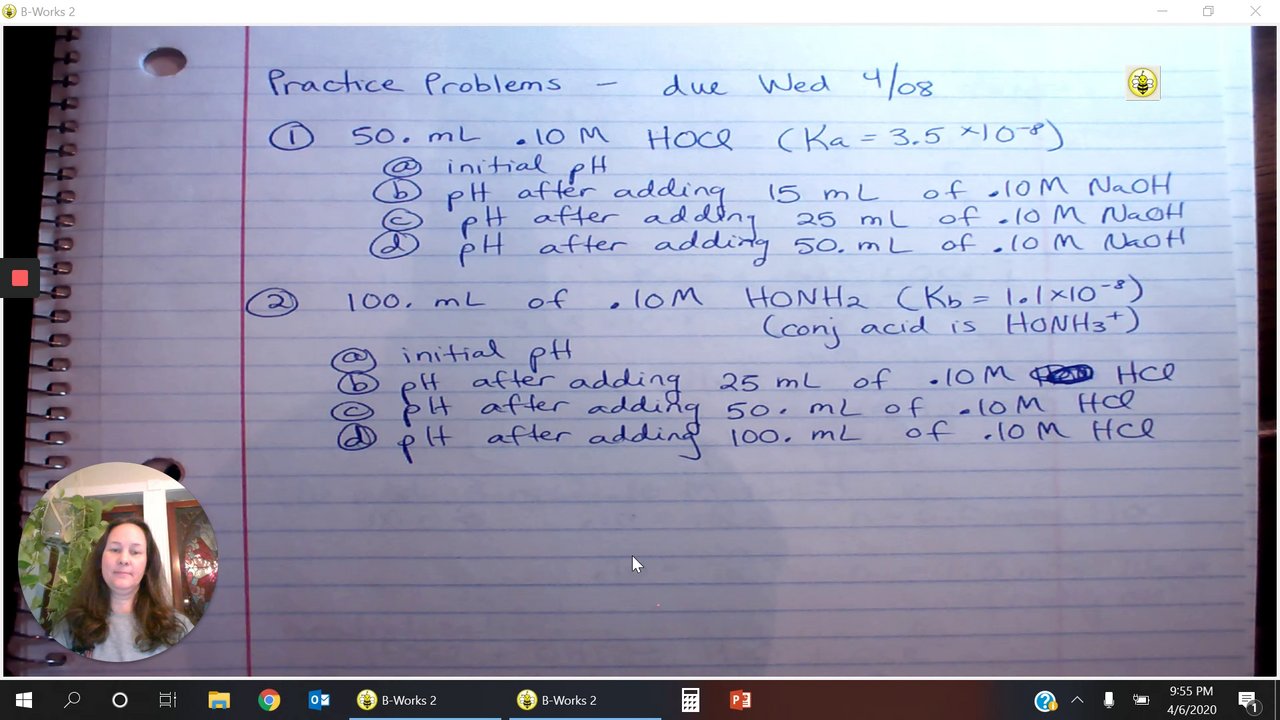 B-Works 2
Practice Problems - due Wed 4/08
① 50. mL .10 M HOCl (Ka = 3.5 ×10⁻⁸)
ⓐ initial pH
ⓑ pH after adding 15 mL of .10 M NaOH
ⓒ pH after adding 25 mL of .10 M NaOH
ⓓ pH after adding 50. mL of .10 M NaOH
② 100. mL of .10 M HONH₂ (Kb = 1.1×10⁻⁸)
(conj acid is HONH₃⁺)
ⓐ initial pH
ⓑ pH after adding 25 mL of .10 M HCl
ⓒ pH after adding 50. mL of .10 M HCl
ⓓ pH after adding 100. mL of .10 M HCl
B-Works 2 B-Works 2 9:55 PM
4/6/2020 1